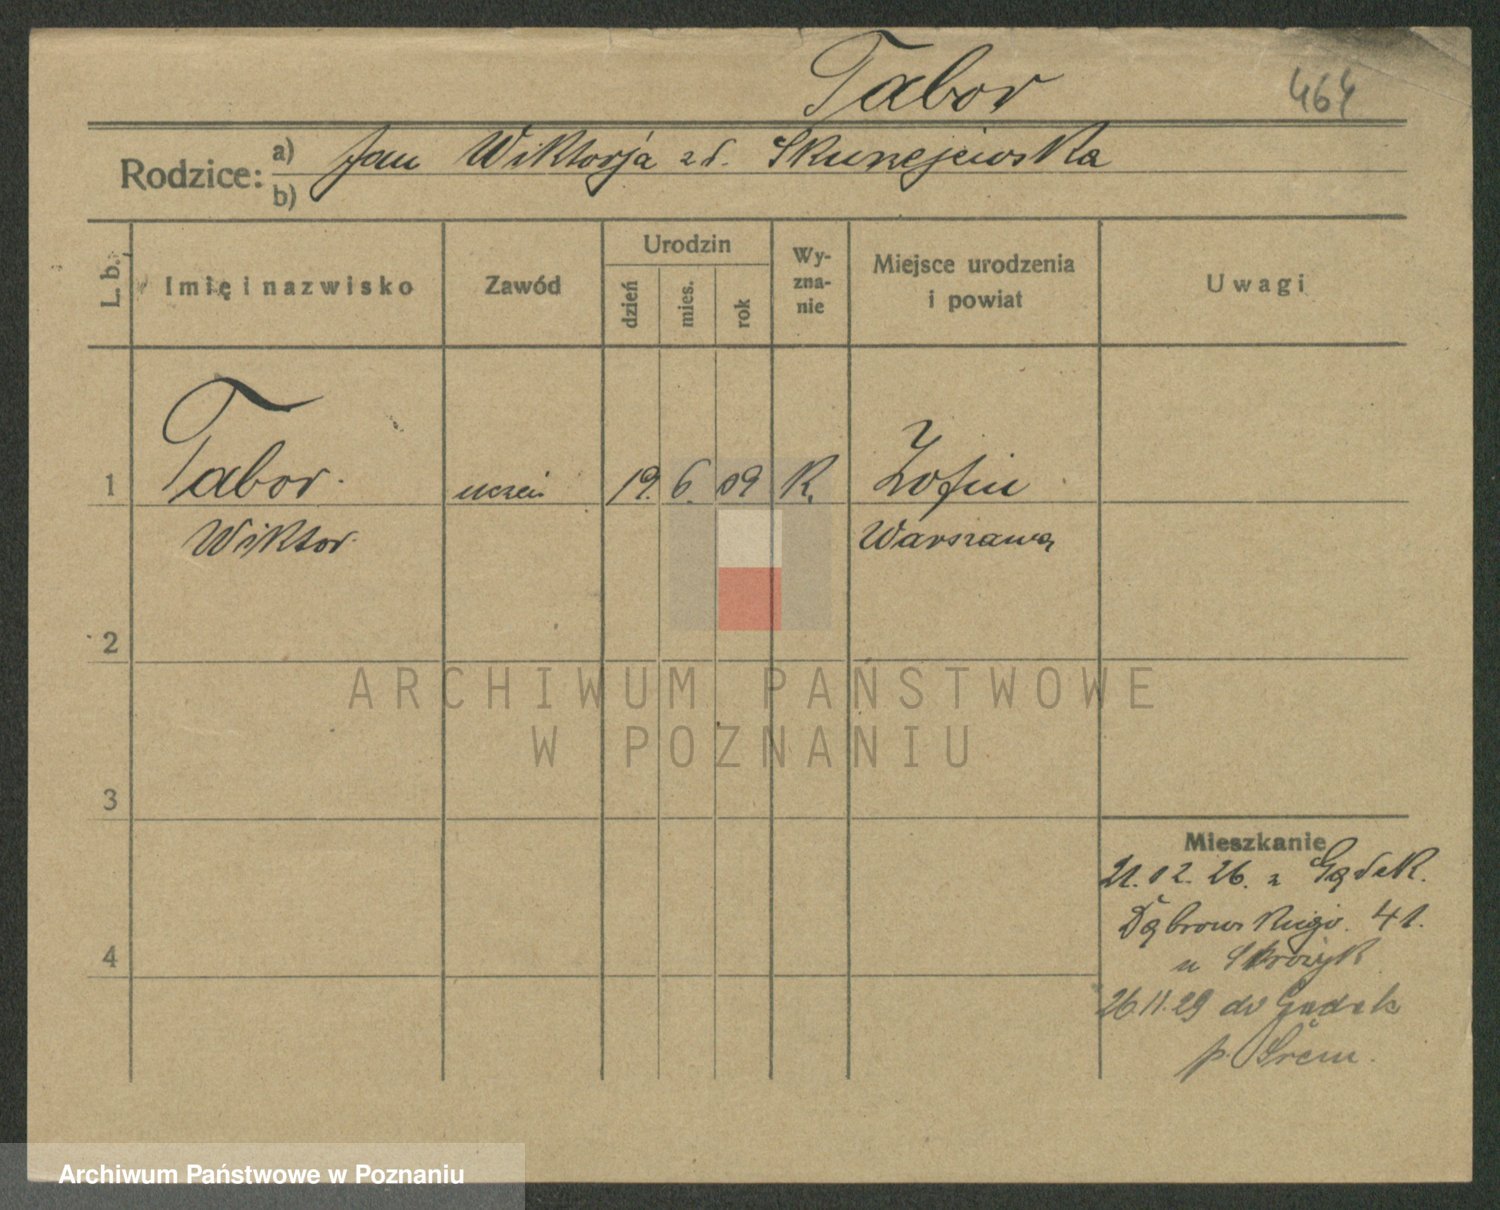 Tabor
464
Rodzice: a) Jan Wiktorja zd.
b)
L. b. Imię i nazwisko Zawód Urodzin dzień mies. rok Wyznanie Miejsce urodzenia i powiat Uwagi
1 Tabor uczeń 19. 6. 09 R. Zofin
Wiktor Warszawa
2
ARCHIWUM PAŃSTWOWE
W POZNANIU
3
Mieszkanie
21.02.26. z Gądek.
Dąbrowskiego. 41.
4
u
26.11.29 do Gądek
p. Śrem.
Archiwum Państwowe w Poznaniu